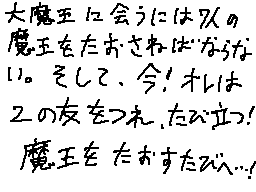 大魔王に会うには7人の
魔王をたおさねばならな
い。そして、今!オレは
2の友をつれ、たび立つ!
魔王をたおすたびへ…!